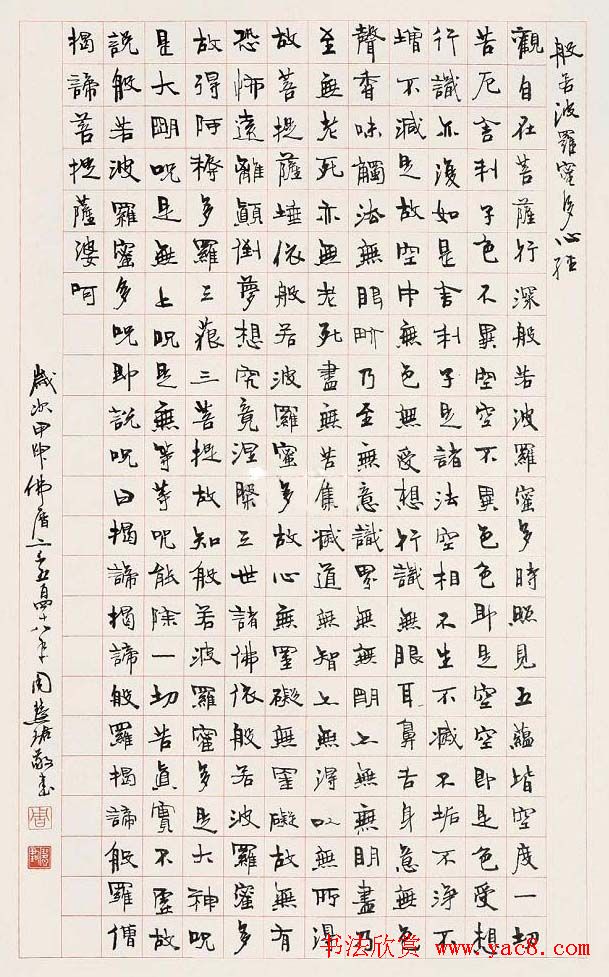 般若波羅蜜多心經
觀自在菩薩行深般若波羅蜜多時照見五蘊皆空度一切
苦厄舍利子色不異空空不異色色即是空空即是色受想
行識亦復如是舍利子是諸法空相不生不滅不垢不淨不
增不減是故空中無色無受想行識無眼耳鼻舌身意無色
聲香味觸法無眼界乃至無意識界無無明亦無無明盡乃
至無老死亦無老死盡無苦集滅道無智亦無得以無所得
故菩提薩埵依般若波羅蜜多故心無罣礙無罣礙故無有
恐怖遠離顛倒夢想究竟涅槃三世諸佛依般若波羅蜜多
故得阿耨多羅三藐三菩提故知般若波羅蜜多是大神咒
是大明咒是無上咒是無等等咒能除一切苦真實不虛故
說般若波羅蜜多咒即說咒曰揭諦揭諦般羅揭諦般羅僧
揭諦菩提薩婆呵
歲次甲申佛曆二千五百四十八年周慧珺敬書
书法欣赏 www.yac8.com